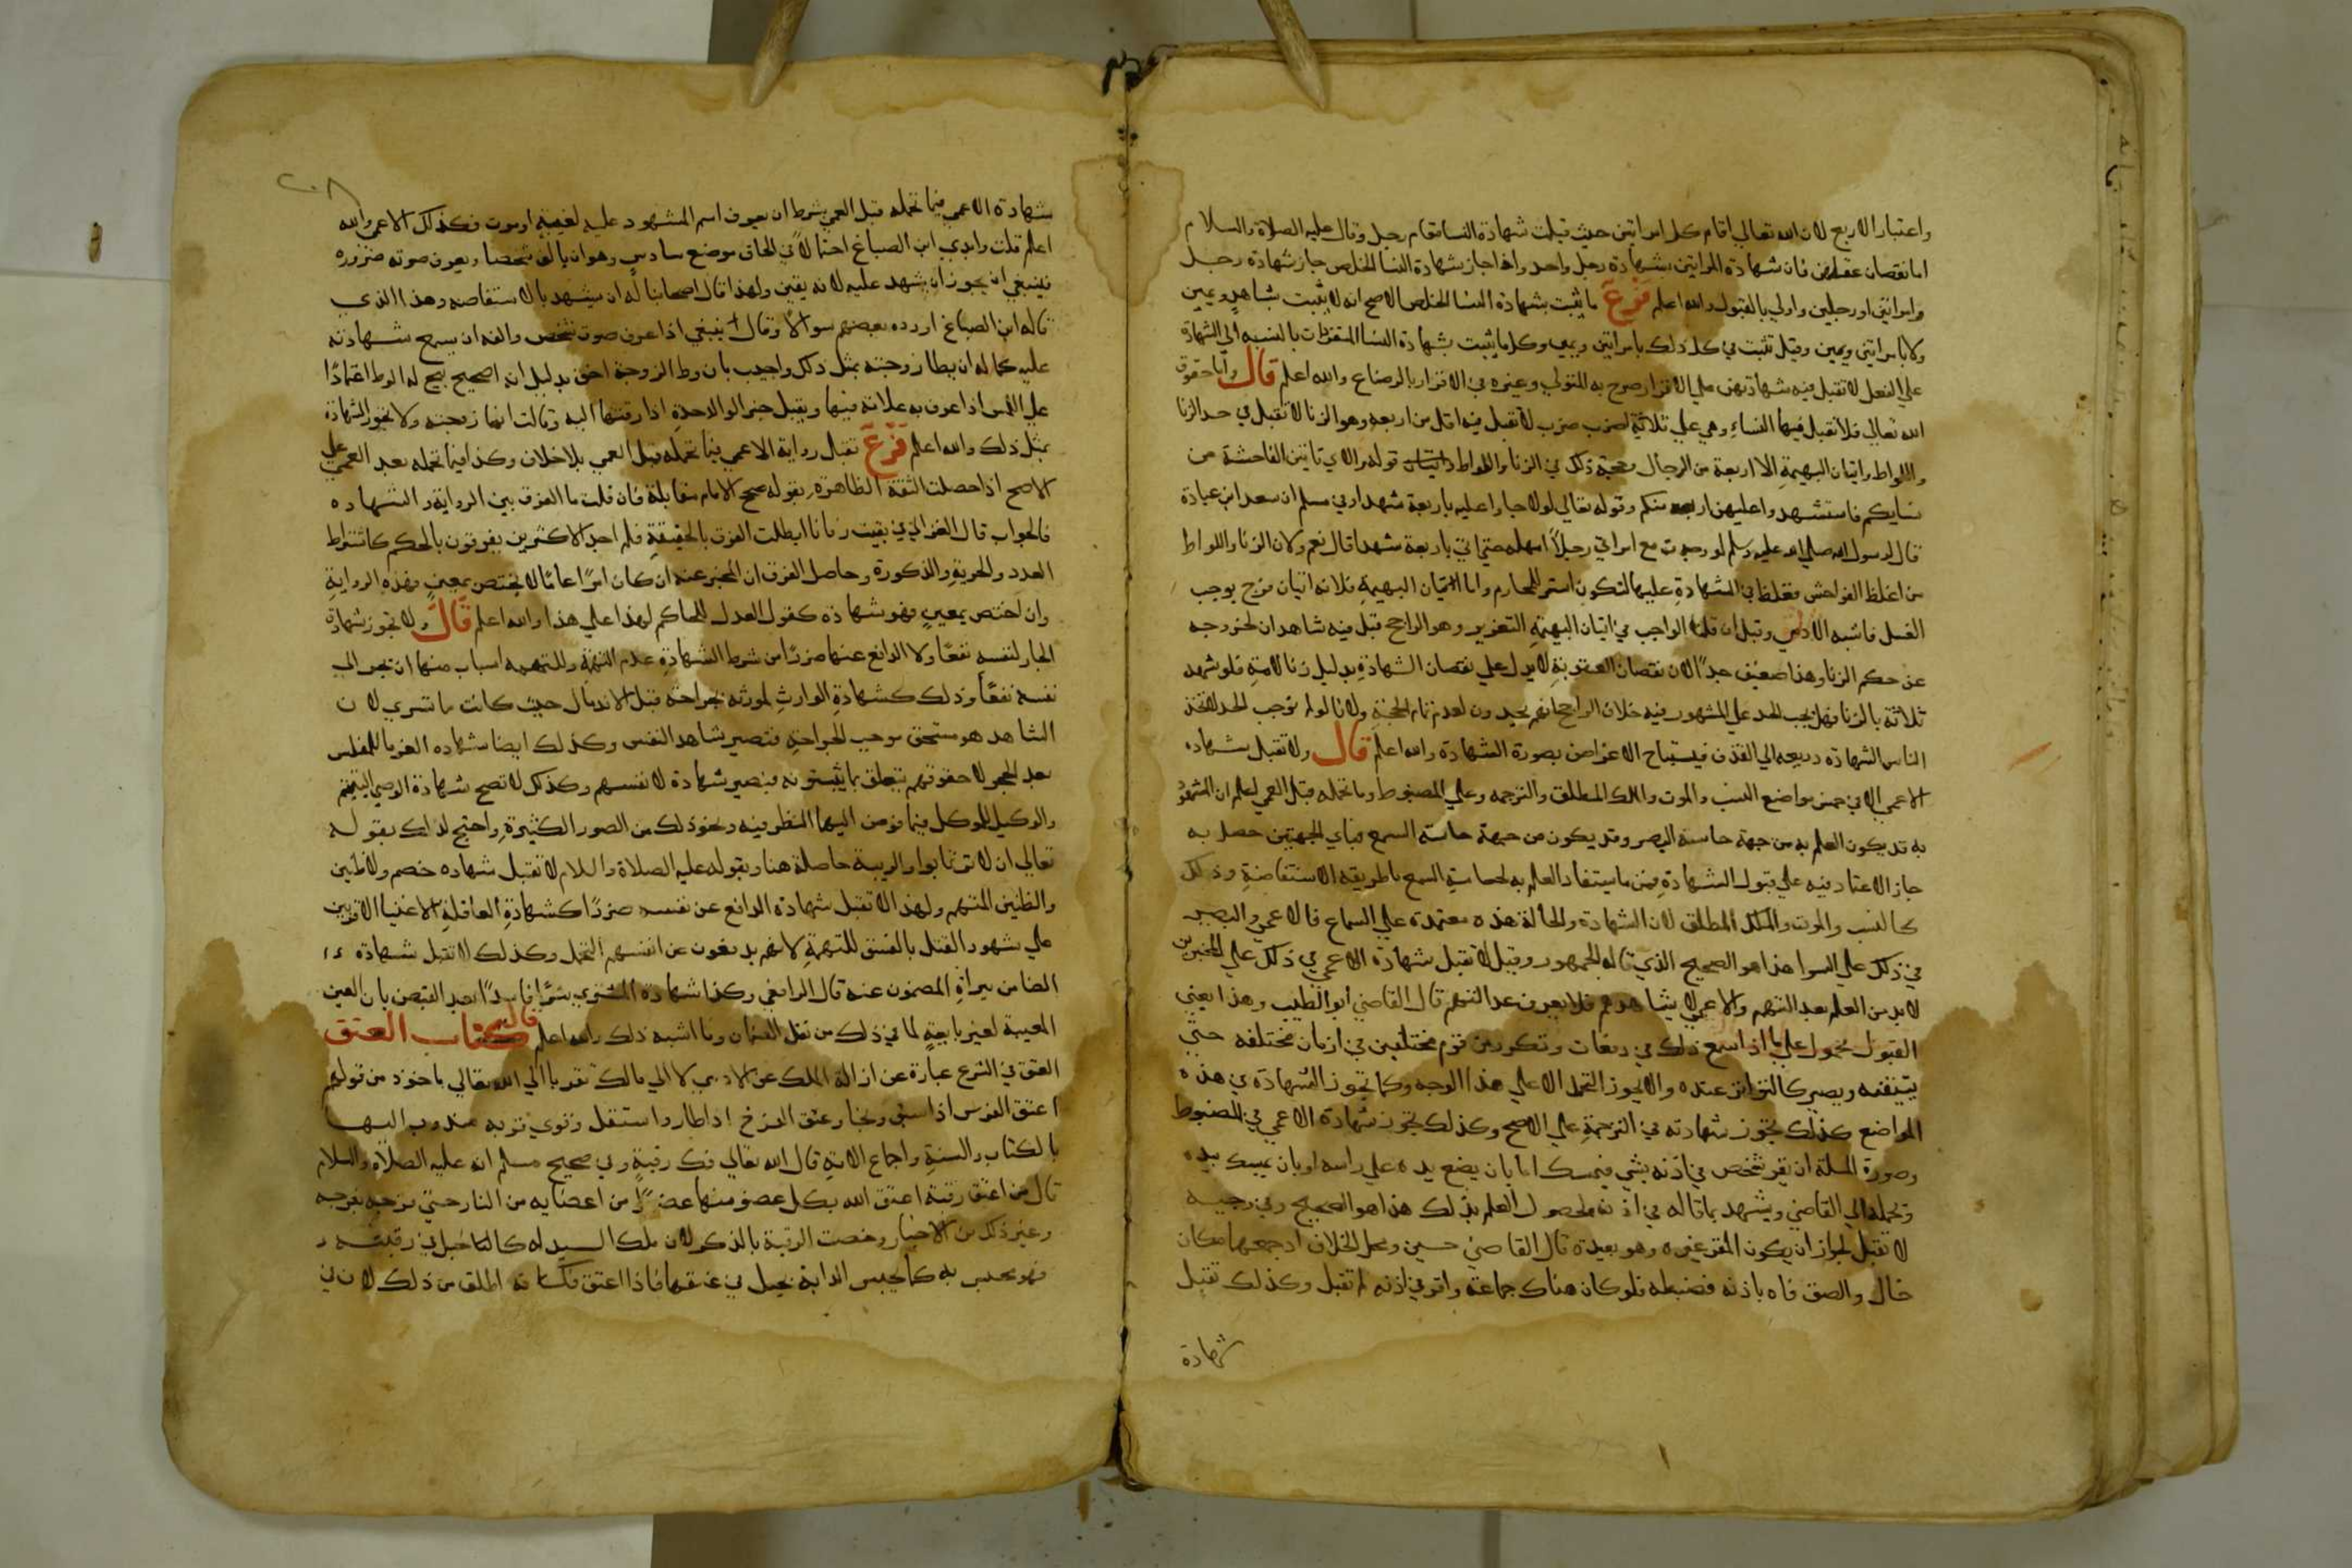 واعتبار الاربع لان الله تعالي اقام كل امراتين حيث قبلت شهادة النسا مقام رجل وقال عليه الصلاة والسلام
اما نقصان عقلهن فان شهادة المراتين بشهادة رجل واحد واذا جاز شهادة النسا الخلص جاز شهادة رجل
وامراتين او رجلين واولي بالقبول والله اعلم فرع ما ثبت بشهادة النسا الخلص الاصح انه لا يثبت بشاهد ويمين
ولا بامراتين ويمين وقيل تثبت في كل ذلك بامراتين ويمين وكل ما يثبت بشهادة النسا المنفردات بالنسبه الي الشهادة
علي الفعل لا تقبل فيه شهادتهن علي الاقرار صرح به المتولي وغيره في الاقرار بالرضاع والله اعلم قال واما حقوق
الله تعالي فلا تقبل فيها النساء وهي علي ثلاثة اضرب ضرب لا تقبل فيه اقل من اربعه وهو الزنا لا تقبل في حد الزنا
واللواط واتيان البهيمة الا اربعة من الرجال وحجة ذلك في الزنا واللواط قوله واللاي تاتين الفاحشة من
نسايكم فاستشهدوا عليهن اربعه منكم وقوله تعالي لولا جاوا عليه باربعة شهدا وفي مسلم ان سعد ابن عبادة
قال لرسول الله صلي الله عليه وسلم لو وجدت مع امراتي رجلاً امهله حتي اتي باربعة شهدا قال نعم ولان الزنا واللواط
من اغلظ الفواحش فغلظ في الشهادة عليها لتكون استر للمحارم واما اتيان البهيمة فلانه اتيان فرج يوجب
الغسل فاشبه الادمي وقيل ان قلنا الواجب في اتيان البهيمة التعزير وهو الراجح قبل فيه شاهدان لخروجه
عن حكم الزنا وهذا ضعيف جداً لان نقصان العقوبة لا يدل علي نقصان الشهادة بدليل زنا الامة فلو شهد
ثلاثة بالزنا فهل يجب الحد علي الشهود فيه خلاف الراجح انهم يحدون لعدم تمام الحجة ولانا لو لم نوجب الحد لاتخذ
الناس الشهادة ذريعه الي القذف فيستباح الاعراض بصورة الشهادة والله اعلم قال ولا تقبل شهادة
الاعمي الا في خمس مواضع النسب والموت والملك المطلق والترجمه وعلي المضبوط وما تحمله قبل العمي اعلم ان المشهود
به قد يكون العلم به من جهة حاسة البصر وقد يكون من جهة حاسة السمع فباي الجهتين حصل به
جاز الاعتماد فيه علي قبول الشهادة فمن ما يستفاد العلم به لحاسة السمع ما طريقه الاستفاضة وذلك
كالنسب والموت والملك المطلق لان الشهادة والحالة هذه معتمدة علي السماع فالاعمي والبصير
في ذلك علي السوا هذا هو الصحيح الذي قاله الجمهور وقيل لا تقبل شهادة الاعمي في ذلك علي المخبرين
لا بد من العلم بعدالتهم والاعمي لا يشاهدهم فلا يعرف عدالتهم قال القاضي ابو الطيب وهذا يعني
القبول محمول علي ما اذا سمع ذلك في دفعات وتكرر من قوم مختلفين في ازمان مختلفه حتي
يتيقنه ويصير كالتواتر عنده ولا يجوز التحمل الا علي هذا الوجه وكما تجوز الشهادة في هذه
المواضع كذلك تجوز شهادته في الترجمة علي الاصح وكذلك تجوز شهادة الاعمي في المضبوط
وصورة المسلة ان يقر شخص في اذنه بشي فيمسك اما بان يضع يده علي راسه او بان يمسك بيده
وتحمله الي القاضي ويشهد بما قاله في اذنه لحصول العلم بذلك هذا هو الصحيح وفي وجه
لا تقبل لجواز ان يكون المقر غيره وهو بعيد قال القاضي حسين ومحل الخلاف اذ جمعهما مكان
خال والصق فاه باذنه فضبطه فلو كان هناك جماعة واقر في اذنه لم تقبل وكذلك تقبل
شهادة
٢٠٨
شهادة الاعمي فيما تحمله قبل العمي بشرط ان يعرف اسم المشهود عليه لغيبته او موت فكذلك الاعمي والله
اعلم قلت وابدي ابن الصباغ احتمالاً في الحاق موضع سادس وهو ان يالف شخصا ويعرف صوته ضرورة
فينبغي ان يجوز ان يشهد عليه لانه يقين ولهذا قال اصحابنا له ان يشهد بالاستفاضه وهذا الذي
قاله ابن الصباغ اورده بعضهم سوالاً وقال ينبغي اذا عرف صوت شخص والفه ان يسمع شهادته
عليه كما له ان يطا زوجته بمثل ذلك واجيب بان وطا الزوجة اخف بدليل انه اصحيح يبيح له الوط اعتماداً
علي اللمس اذا عرف به علامة فيها ويقبل خبر الواحدة اذا زفتها اليه وقالت انها زوجته ولا تجوز الشهادة
بمثل ذلك والله اعلم فرع تقبل رواية الاعمي فيما تحمله قبل العمي بلا خلاف وكذا فيما تحمله بعد العمي علي
الاصح اذا حصلت الثقة الظاهرة بقوله صحح الامام مقابلة فان قلت ما الفرق بين الرواية والشهاده
فالجواب قال الغزالي بقيت زمانا ابطلب الفرق بالحقيقة فلم اجد الاكثرين يفرقون بالحكم كاشتراط
العدد والحرية والذكورة وحاصل الفرق ان المخبر عنه ان كان امراً عامًا لا يختص بمعين فهذه الرواية
وان اختص بمعين فهو شهادة كقول العدل للحاكم لهذا علي هذا والله اعلم قال ولا تجوز شهادة
الجار لنفسه نفعًا ولا الدافع عنها ضررًا من شرط الشهادة عدم التهمة وللتهمه اسباب منها ان يجر الي
نفسه نفعًا وذلك كشهادة الوارث لمورثه بجراحة قبل الاندمال حيث كانت ما تسري لان
الشاهد هو مستحق موجب الجراحة فتصير شاهد النفس وكذلك ايضا شهاده الغرما للمفلس
بعد الحجر لا حقوقهم تتعلق بما يثبتونه فيصير شهادة لانفسهم وكذلك لا تصح شهادة الوصي لليتيم
والوكيل للموكل فيما فوض اليهما النظر فيه ونحو ذلك من الصور الكثيرة واحتج لذلك بقوله
تعالي ان لا ترتابوا والريبة حاصلة هنا وبقوله عليه الصلاة والسلام لا تقبل شهاده خصم ولا ظنين
والظنين المتهم ولهذا لا تقبل شهادة الدافع عن نفسه ضررًا كشهادة العاقلة الاغنيا الاقربين
علي شهود القتل بالفسق للتهمة لانهم يدفعون عن انفسهم التحمل وكذلك لا تقبل شهادة
الضامن ببراة المضمون عنه قال الرافعي وكذا شهادة المشتري شراً فاسداً بعد القبض بان العين
المعيبة لغير بايعه لما في ذلك من نقل الضمان وما اشبه ذلك والله اعلم قال كتاب العتق
العتق في الشرع عبارة عن ازالة الملك عن الادمي لا الي مالك تقربا الي الله تعالي ماخوذ من قولهم
اعتق الفرس اذا سبق ونجا وعتق الفرخ اذا طار واستقل وقوي قربه مندوب اليها
بالكتاب والسنة واجماع الامة قال الله تعالي فك رقبة وفي صحيح مسلم انه عليه الصلاة والسلام
قال من اعتق رقبة اعتق الله بكل عضو منها عضواً من اعضايه من النار حتي فرجه بفرجه
وغير ذلك من الاخبار وخصت الرقبة بالذكر لان ملك السيد له كالحبل في رقبته
فهو محبس به كما يحبس الدابة بحبل في عنقها فاذا اعتق فكانه اطلق من ذلك لان في